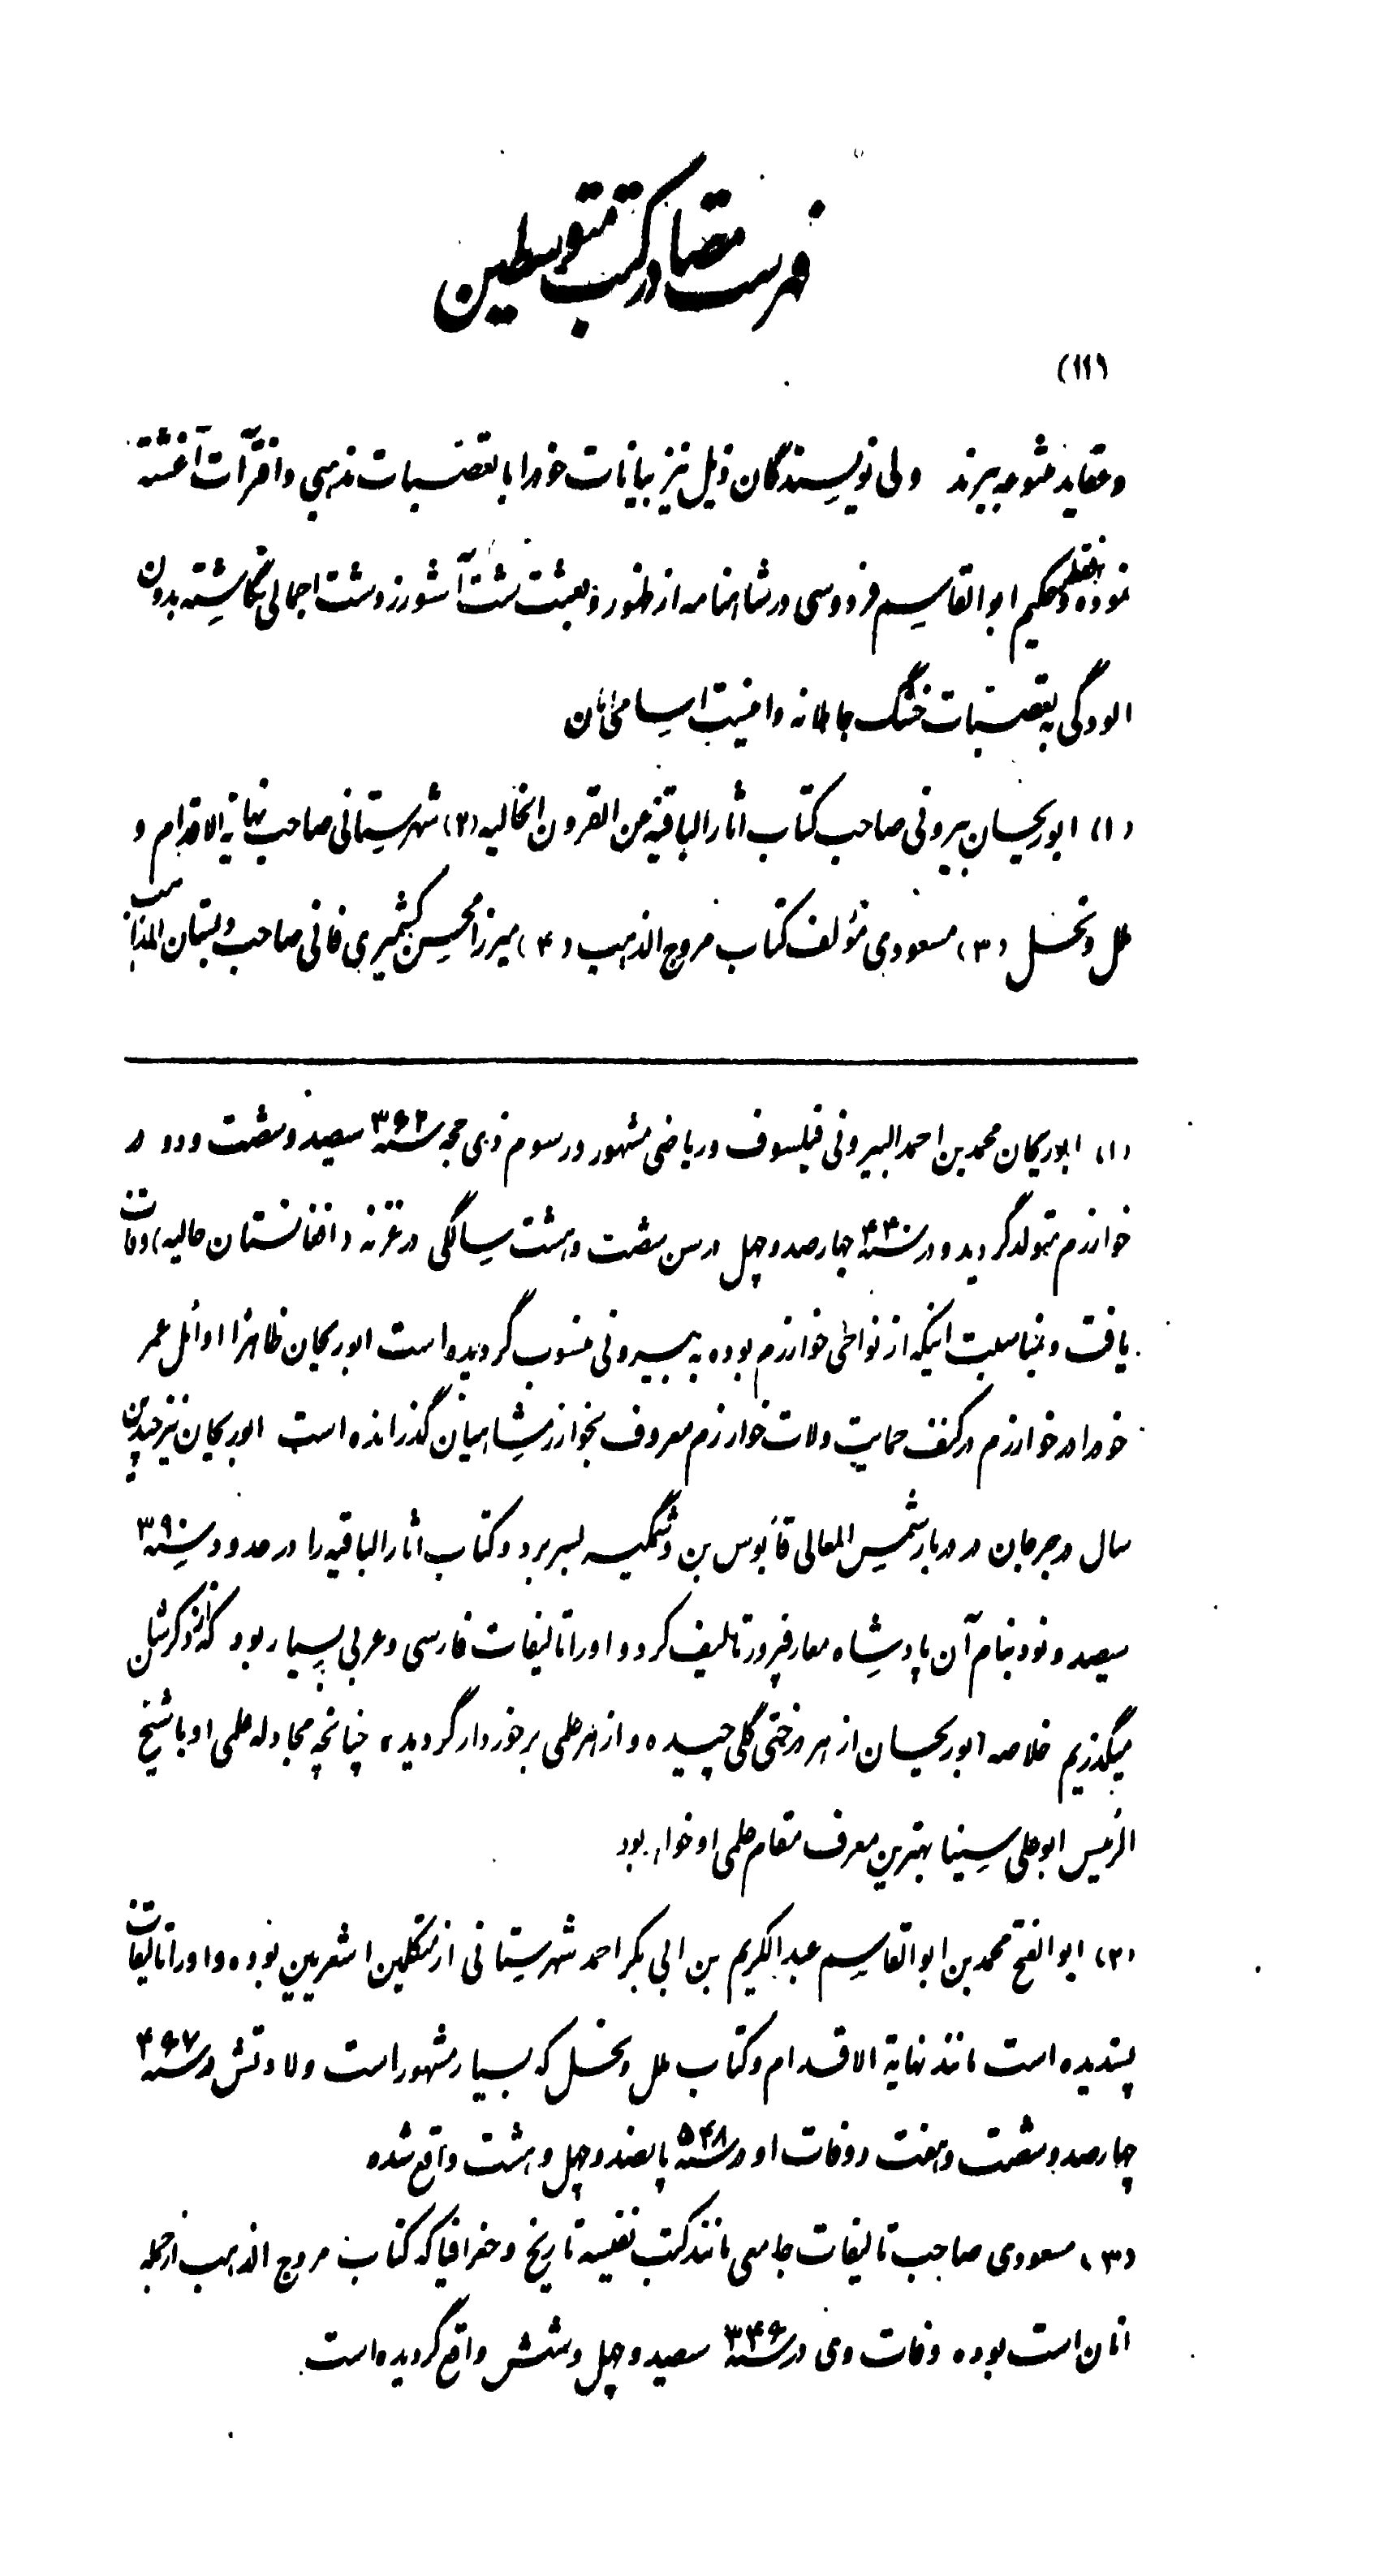 فهرست مصادر کتب متوسطین
(۱۱)
و عقاید متنوعه ببرند ولی نویسندگان ذیل نیز بیانات خود را با تعصبات مذهبی و افترآت آغشته
نموده و فقط حکیم ابوالقاسم فردوسی در شاهنامه از ظهور و بعثت شت آشو زردشت اجمالی نگاشته بدون
الودگی به تعصبات خشک جاهلانه و اینست اسامی آنان
(۱) ابوریحان بیرونی صاحب کتاب اثار الباقیه عن القرون الخالیه (۲) شهرستانی صاحب نهایة الاقدام و
ملل و نحل (۳) مسعودی مؤلف کتاب مروج الذهب (۴) میرزا محسن کشمیری فانی صاحب دبستان المذاهب
(۱) ابوریحان محمد بن احمد البیرونی فیلسوف و ریاضی مشهور در سوم ذی حجه سنه ۳۶۲ سیصد و شصت و دو در
خوارزم متولد گردید و در سنه ۴۴۰ چهارصد و چهل در سن شصت و هشت سالگی در غزنه (افغانستان حالیه) وفات
یافت و بمناسبت اینکه از نواحی خوارزم بوده به بیرونی منسوب گردیده است ابوریحان ظاهراً اوائل عمر
خود را در خوارزم در کنف حمایت ولات خوارزم معروف بخوارزمشاهیان گذرانده است ابوریحان نیز چندین
سال در جرجان در دربار شمس المعالی قابوس بن وشمگیر بسر برد و کتاب اثار الباقیه را در حدود سنه ۳۹۰
سیصد و نود بنام آن پادشاه معارفپرور تالیف کرد و اورا تالیفات فارسی و عربی بسیار بود که از ذکرشان
میگذریم خلاصه ابوریحان از هر درختی گلی چیده و از هر علمی برخوردار گردیده چنانچه مجادله علمی او با شیخ
الرئیس ابوعلی سینا بهترین معرف مقام علمی او خواهد بود
(۲) ابوالفتح محمد بن ابوالقاسم عبدالکریم بن ابی بکر احمد شهرستانی از متکلمین اشعریین بوده و اورا تالیفات
پسندیده است مانند نهایة الاقدام و کتاب ملل و نحل که بسیار مشهور است ولادتش در سنه ۴۶۷
چهارصد و شصت و هفت و وفات او در سنه ۵۴۸ پانصد و چهل و هشت واقع شده
(۳) مسعودی صاحب تالیفات جامعی مانند کتب نفیسه تاریخ و جغرافیا که کتاب مروج الذهب از جمله
انان است بوده وفات وی در سنه ۳۴۶ سیصد و چهل و شش واقع گردیده است